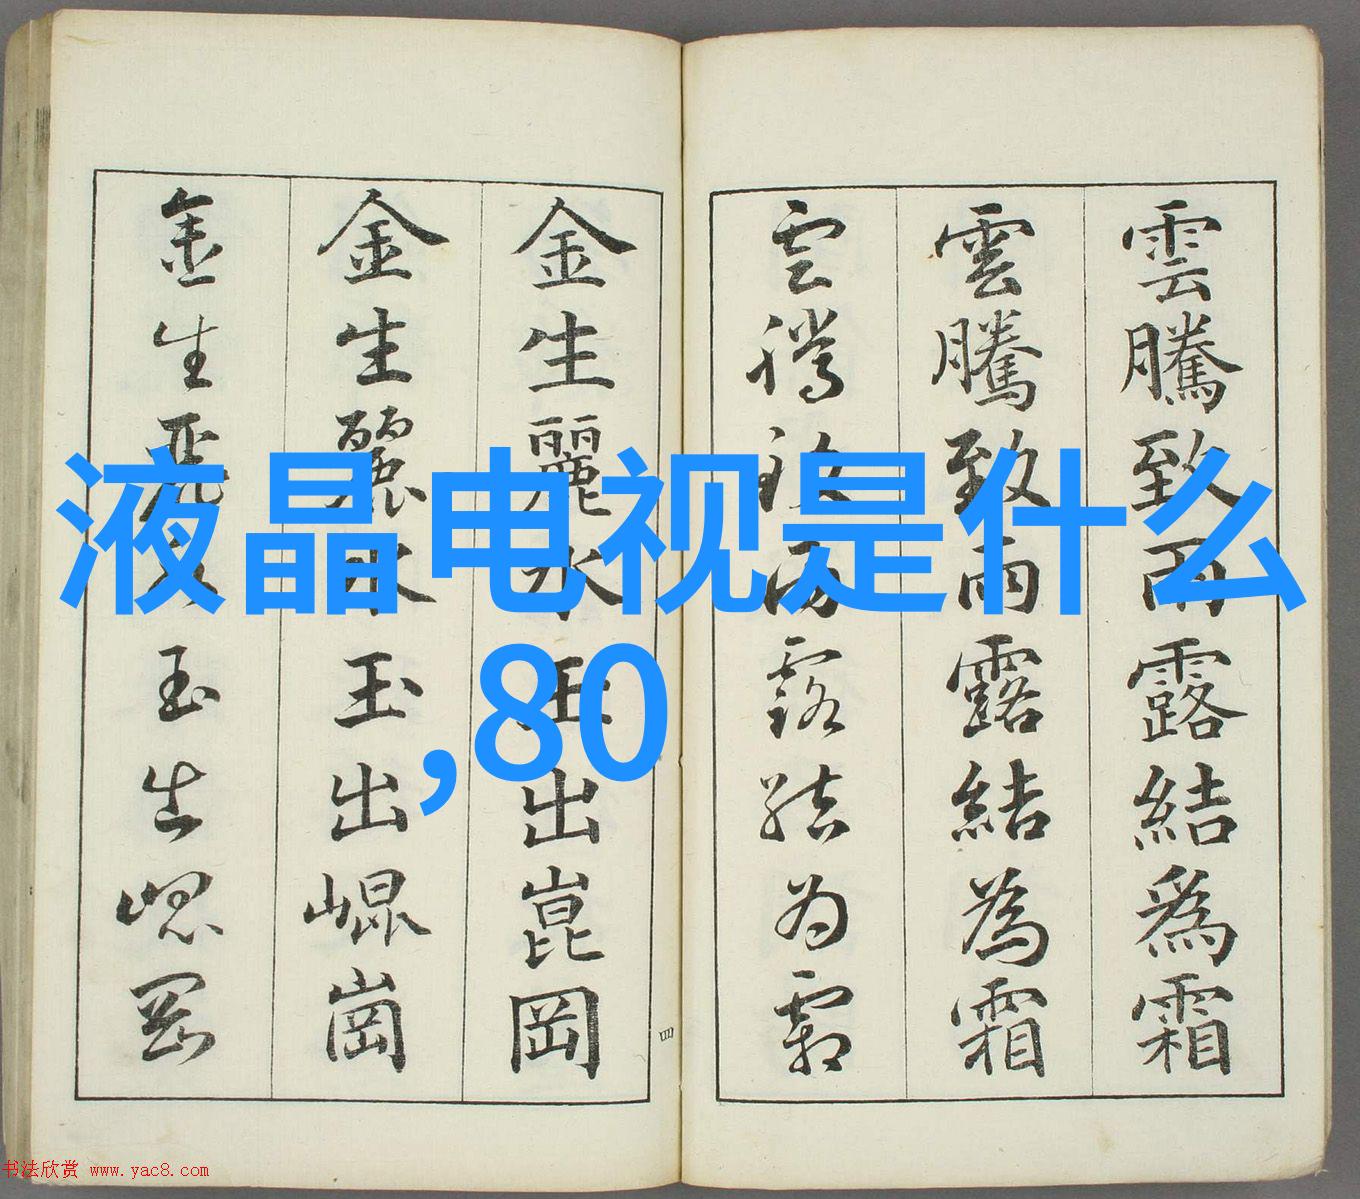 雲騰致雨露結爲霜
雲騰致雨露結為霜
雲騰致雨露結為霜
金生麗水玉出崑岡
金生麗水玉出崐崗
金生麗水玉出崐岡
四
液晶电视是什么
,80
书法欣赏 www.yac8.com